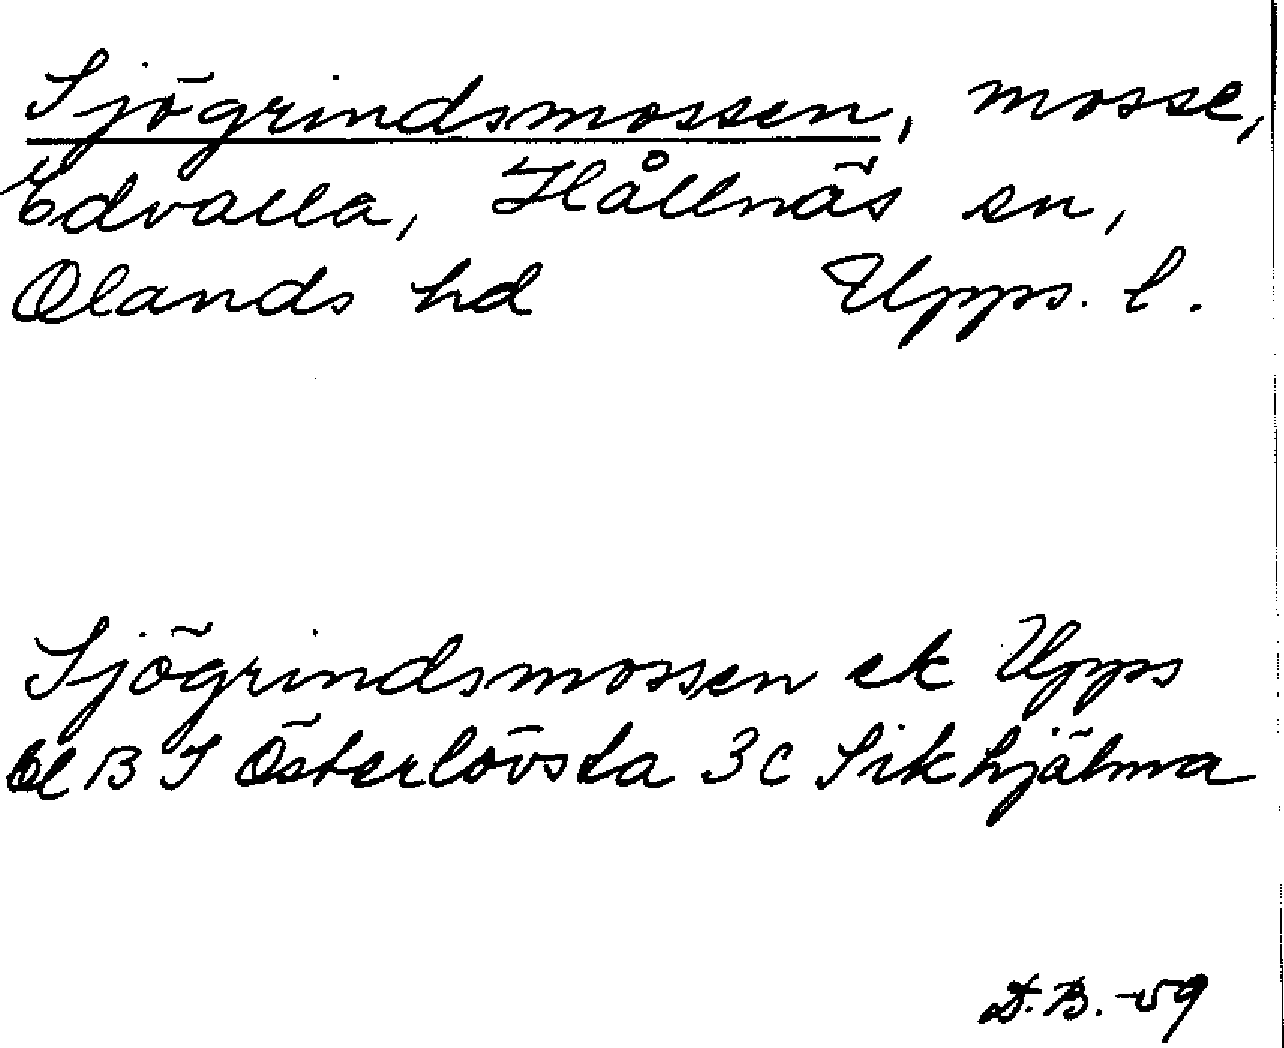 Sjögrindsmossen, mosse,
Edvalla, Hållnäs sn,
Olands hd Upps. l.
Sjögrindsmossen ek Upps
Bl B I Österlövsta 3c Sikhjälma
D.B. -59